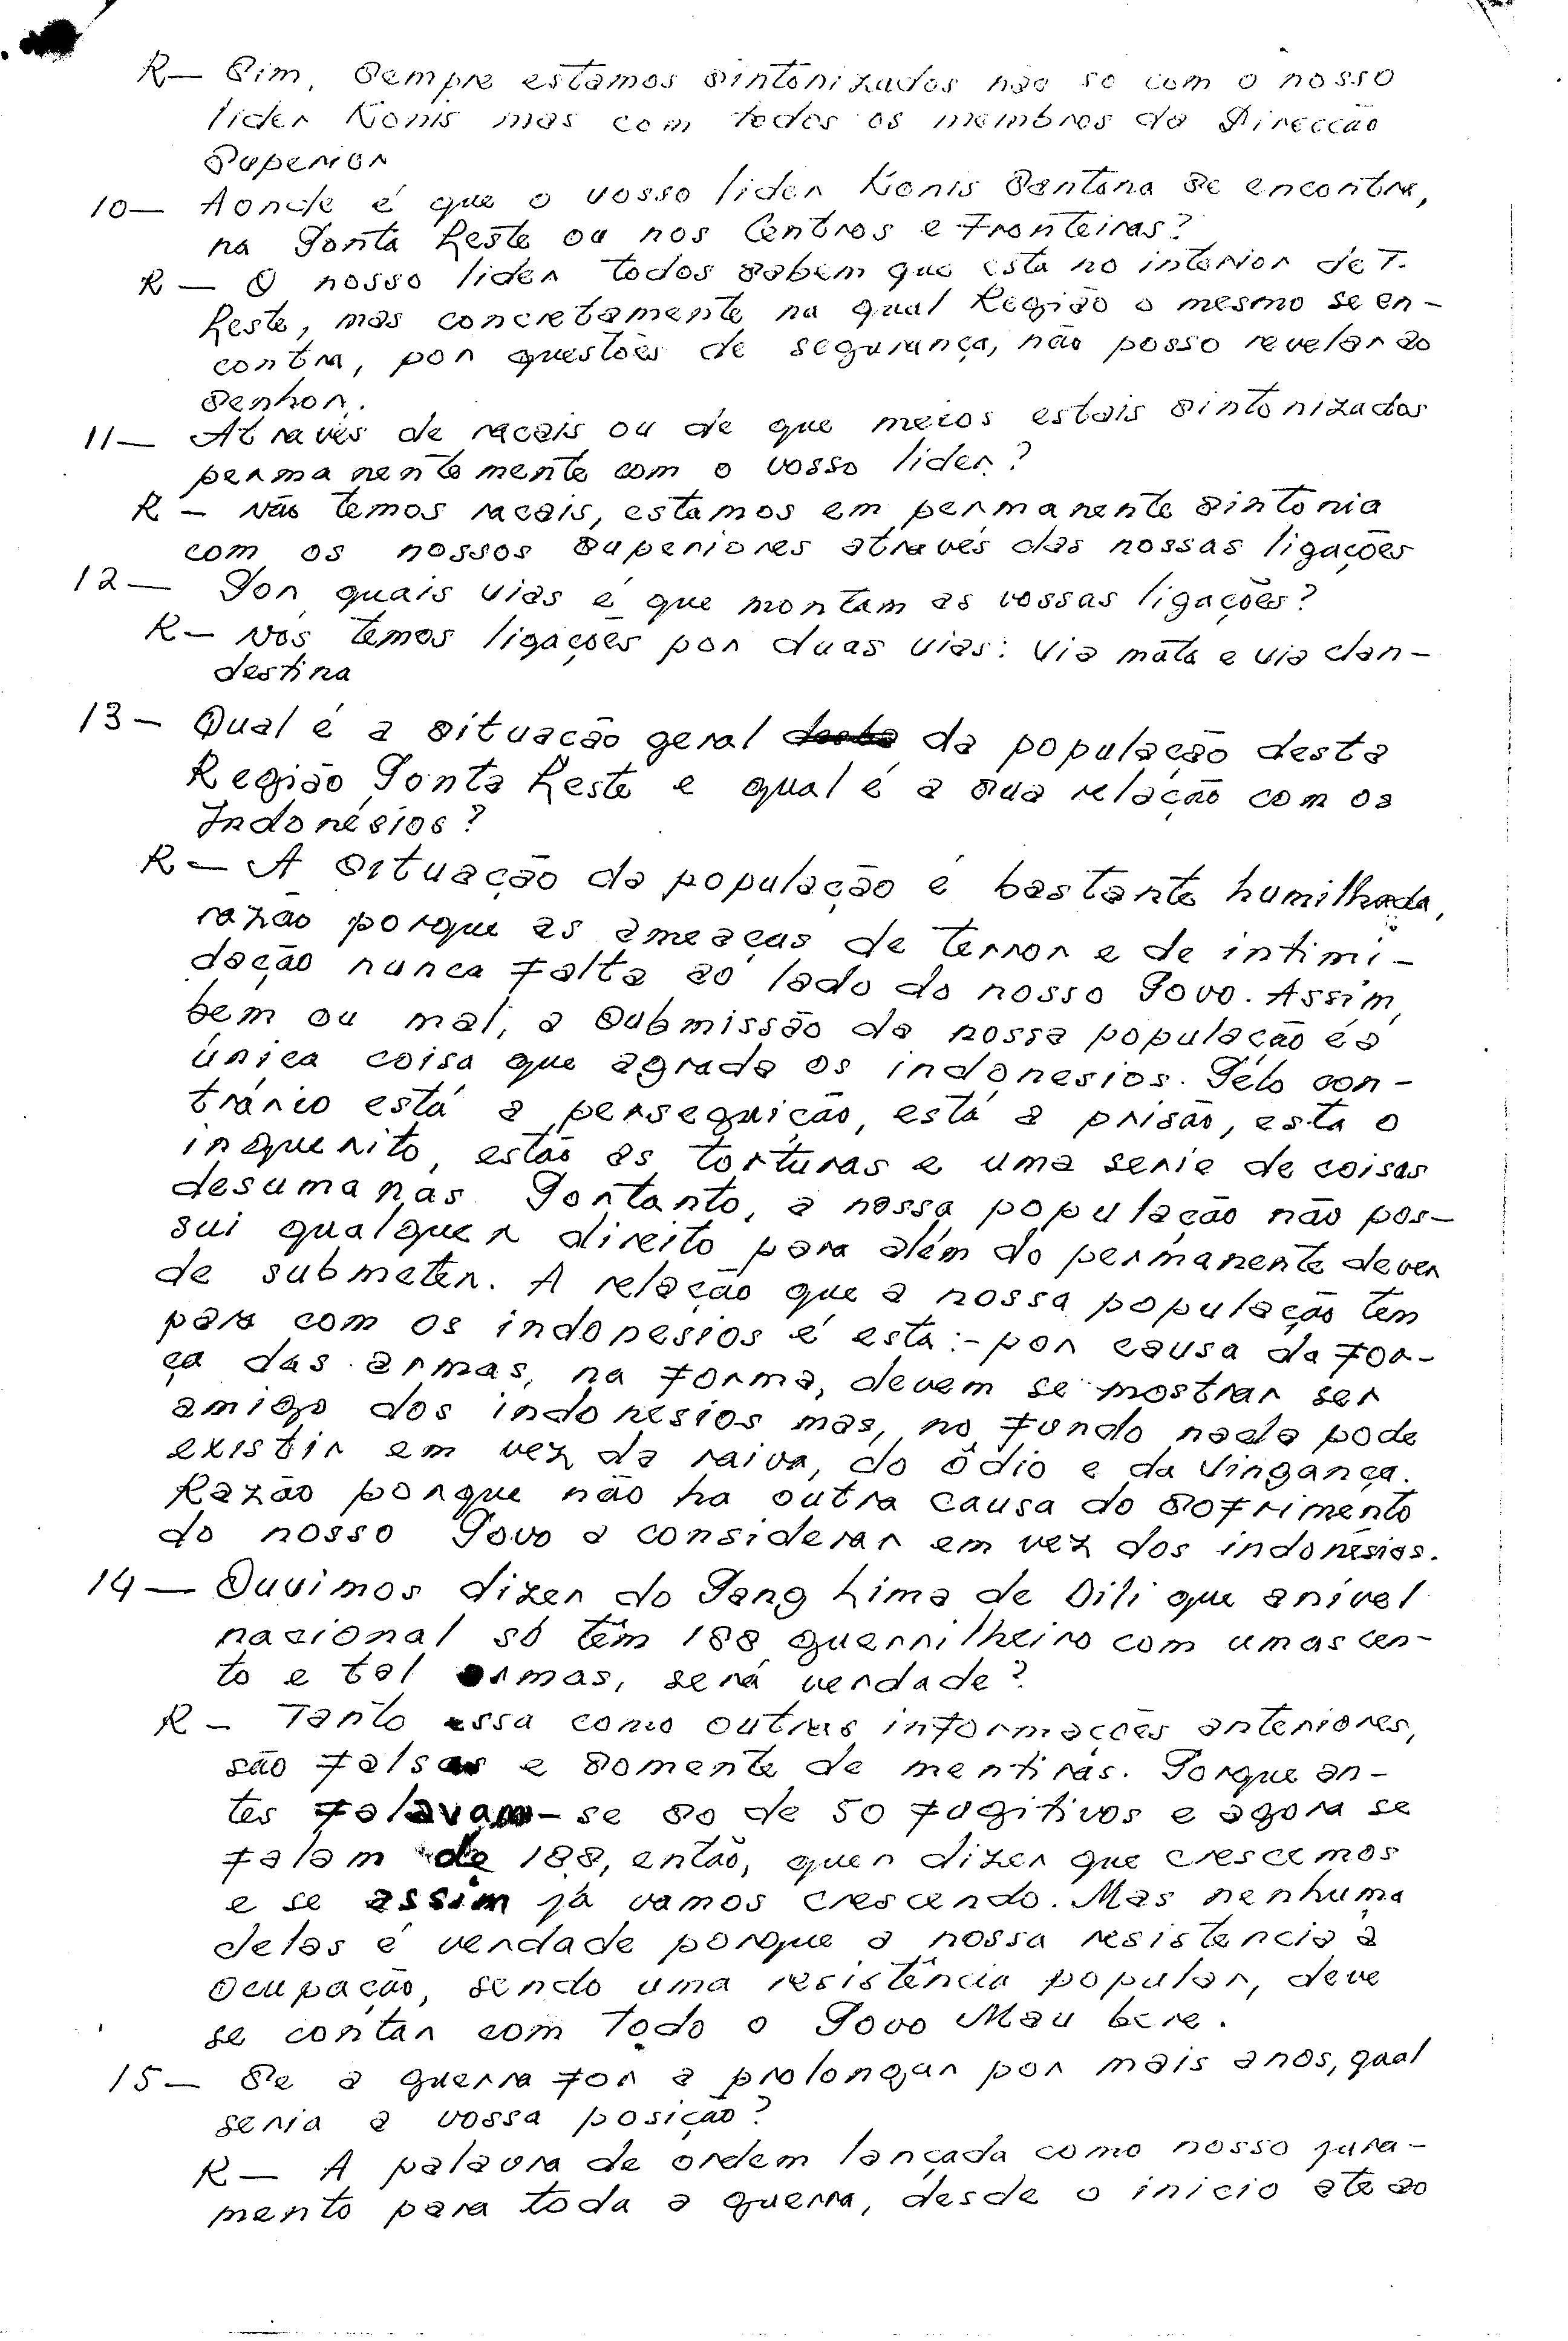 R— Sim, Sempre estamos sintonizados não so com o nosso
lider Konis mas com todos os membros da Direcção
Superior
10— Aonde é que o vosso lider Konis Santana se encontra,
na Ponta Leste ou nos Centros e Fronteiras?
R— O nosso lider todos sabem que esta no interior de T.
Leste, mas concretamente na qual Região o mesmo se en-
contra, por questões de segurança, não posso revelar ao
Senhor.
11— Através de racais ou de que meios estais sintonizados
permanentemente com o vosso lider?
R— Não temos racais, estamos em permanente sintonia
com os nossos superiores através das nossas ligações
12— Por quais vias é que montam as vossas ligações?
R— Nós temos ligações por duas vias: Via mata e via clan-
destina
13— Qual é a situação geral desta da população desta
Região Ponta Leste e qual é a sua relação com os
Indonésios?
R— A situação da população é bastante humilhada,
razão porque as ameaças de terror e de intimi-
dação nunca falta ao lado do nosso Povo. Assim,
bem ou mal, a submissão da nossa população é a
única coisa que agrada os indonesios. Pelo con-
trário está a perseguição, está a prisão, esta o
inquerito, estão as torturas e uma serie de coisas
desumanas. Portanto, a nossa população não pos-
sui qualquer direito para além do permanente dever
de submeter. A relação que a nossa população tem
para com os indonesios é esta:- por causa da for-
ça das armas, na forma, devem se mostrar ser
amigo dos indonésios mas, no fundo nada pode
existir em vez da raiva, do ôdio e da vingança.
Razão porque não ha outra causa do sofrimento
do nosso Povo a considerar em vez dos indonésios.
14— Ouvimos dizer do Pang Lima de Dili que anível
nacional só têm 188 guerrilheiro com umas cen-
to e tal armas, será verdade?
R— Tanto essa como outras informações anteriores,
são falsas e somente de mentiras. Porque an-
tes falavam-se so de 50 fugitivos e agora se
falam de 188, então, quer dizer que crescemos
e se assim já vamos crescendo. Mas nenhuma
delas é verdade porque a nossa resistencia à
ocupação, sendo uma resistência popular, deve
se contar com todo o Povo Mau bere.
15— Se a guerra for a prolongar por mais anos, qual
seria a vossa posição?
R— A palavra de ordem lançada como nosso jura-
mento para toda a guerra, desde o inicio ate ao